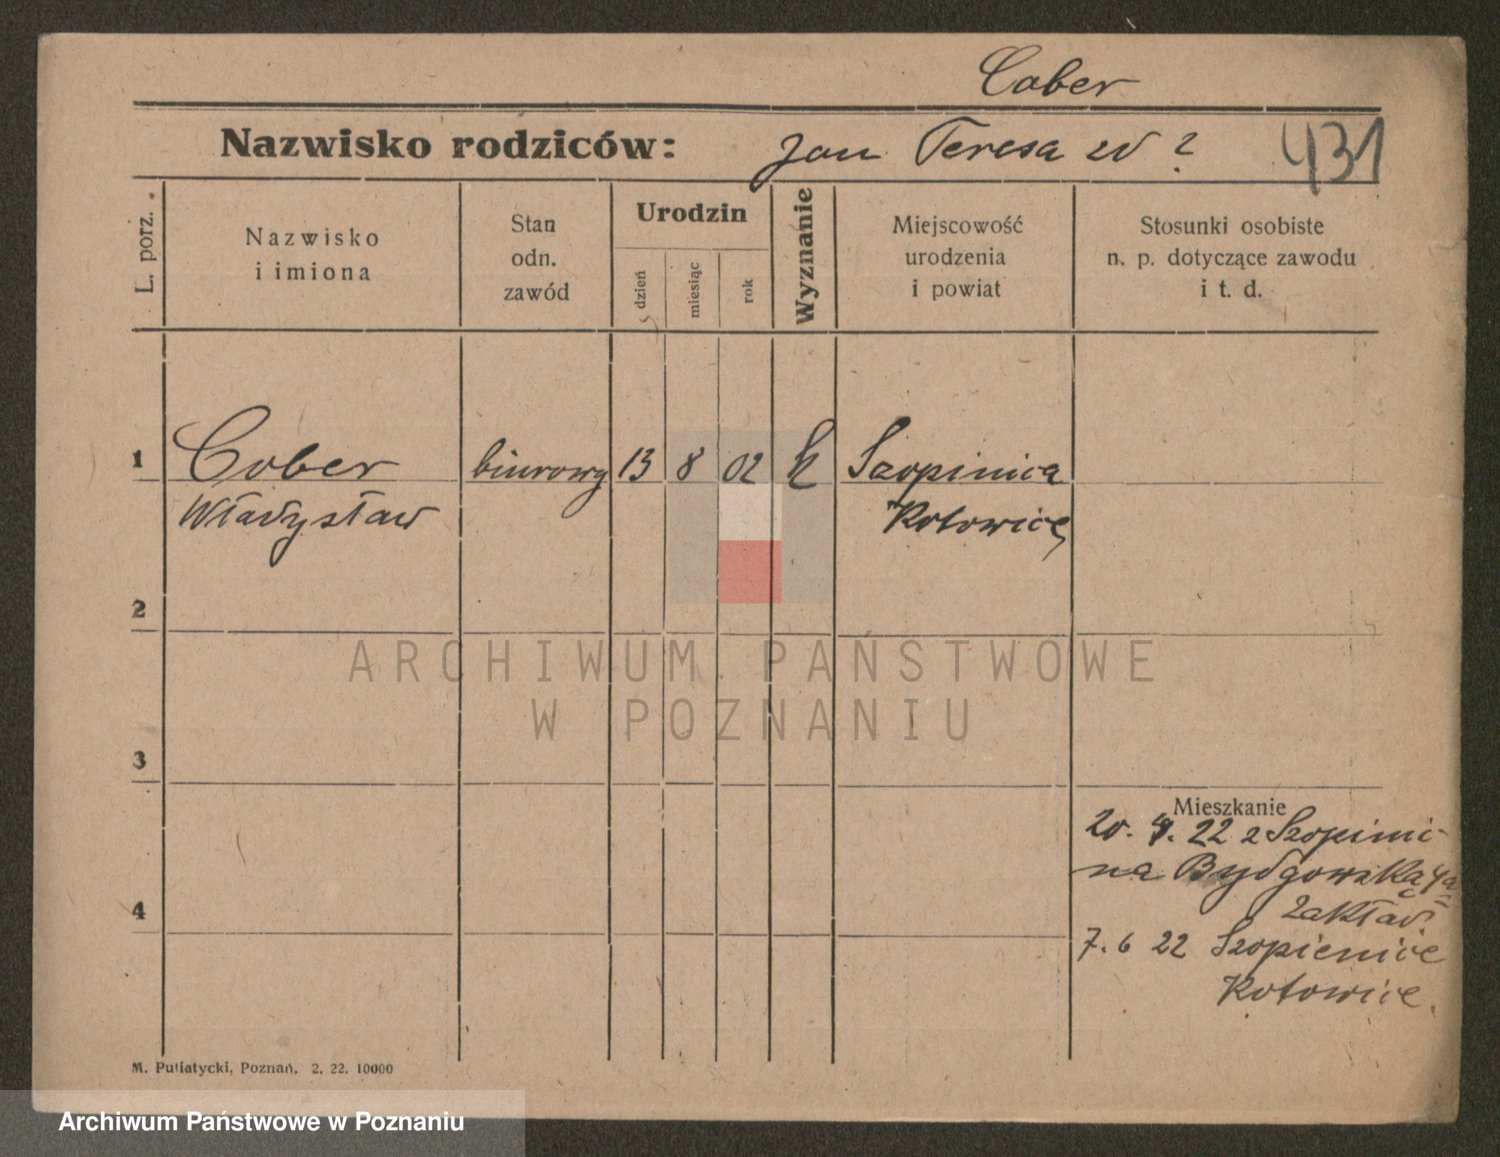 Cober
Nazwisko rodziców: Jan Teresa zd ?
431
L. porz.
Nazwisko
i imiona
Stan
odn.
zawód
Urodzin
dzień
miesiąc
rok
Wyznanie
Miejscowość
urodzenia
i powiat
Stosunki osobiste
n. p. dotyczące zawodu
i t. d.
1 Cober biurowy 13 8 02 k Szopinica
Władysław Kotowice
2
ARCHIWUM PAŃSTWOWE
W POZNANIU
3
Mieszkanie
20. 4. 22 z Szopini-
na Bydgowska 4a
zakład
4
7. 6 22 Szopienice
Kotowice.
M. Putiatycki, Poznań. 2. 22. 10000
Archiwum Państwowe w Poznaniu